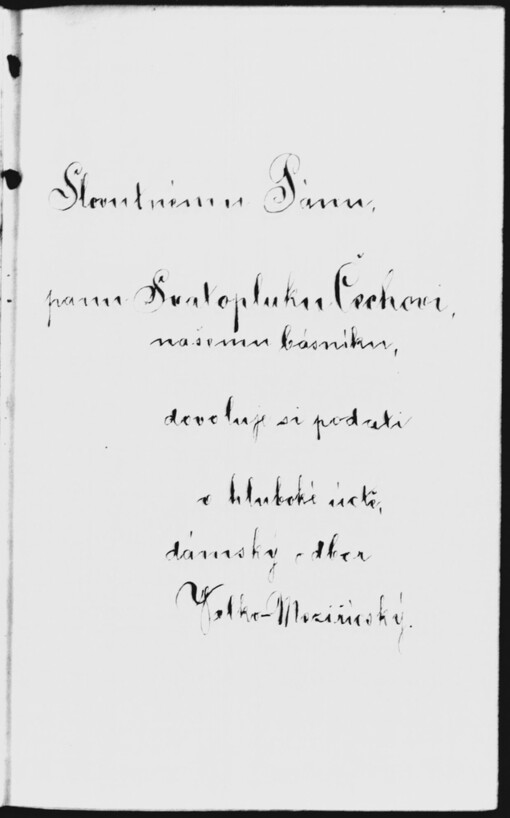 Slovutnému Pánu,
panu Svatopluku Čechovi,
našemu básníku,
dovoluje si podati
v hluboké úctě,
dámský odbor
Velko-Meziříčský.